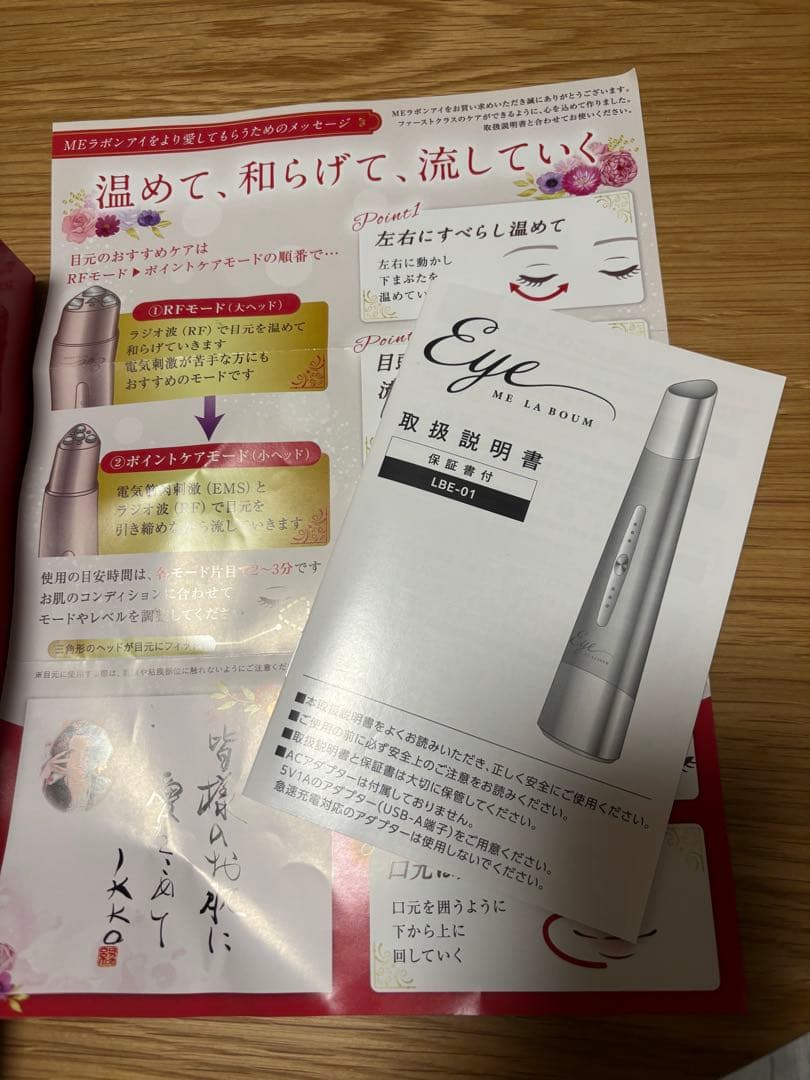 MEラボンアイをより愛してもらうためのメッセージ
MEラボンアイをお買い求めいただき誠にありがとうございます。
ファーストクラスのケアができるように、心を込めて作りました。
取扱説明書と合わせてお使いください。
温めて、和らげて、流していく
目元のおすすめケアは
RFモード▶ポイントケアモードの順番で…
①RFモード（大ヘッド）
ラジオ波（RF）で目元を温めて
和らげていきます
電気刺激が苦手な方にも
おすすめのモードです
②ポイントケアモード（小ヘッド）
電気筋肉刺激（EMS）と
ラジオ波（RF）で目元を
引き締めながら流していきます
使用の目安時間は、各モード片目で2〜3分です
お肌のコンディションに合わせて
モードやレベルを調整してくださ
三角形のヘッドが目元にフィッ
Point1
左右にすべらし温めて
左右に動かし
下まぶたを
温めてい
Point
目頭
流
Eye
ME LA BOUM
取扱説明書
保証書付
LBE-01
Eye
■本取扱説明書をよくお読みいただき、正しく安全にご使用ください。
■ご使用の前に必ず安全上のご注意をお読みください。
■取扱説明書と保証書は大切に保管してください。
■ACアダプターは付属しておりません。
5V1Aのアダプター（USB-A端子）をご用意ください。
急速充電対応のアダプターは使用しないでください。
皆様の
IKKO
口元は
口元を囲うように
下から上に
回していく